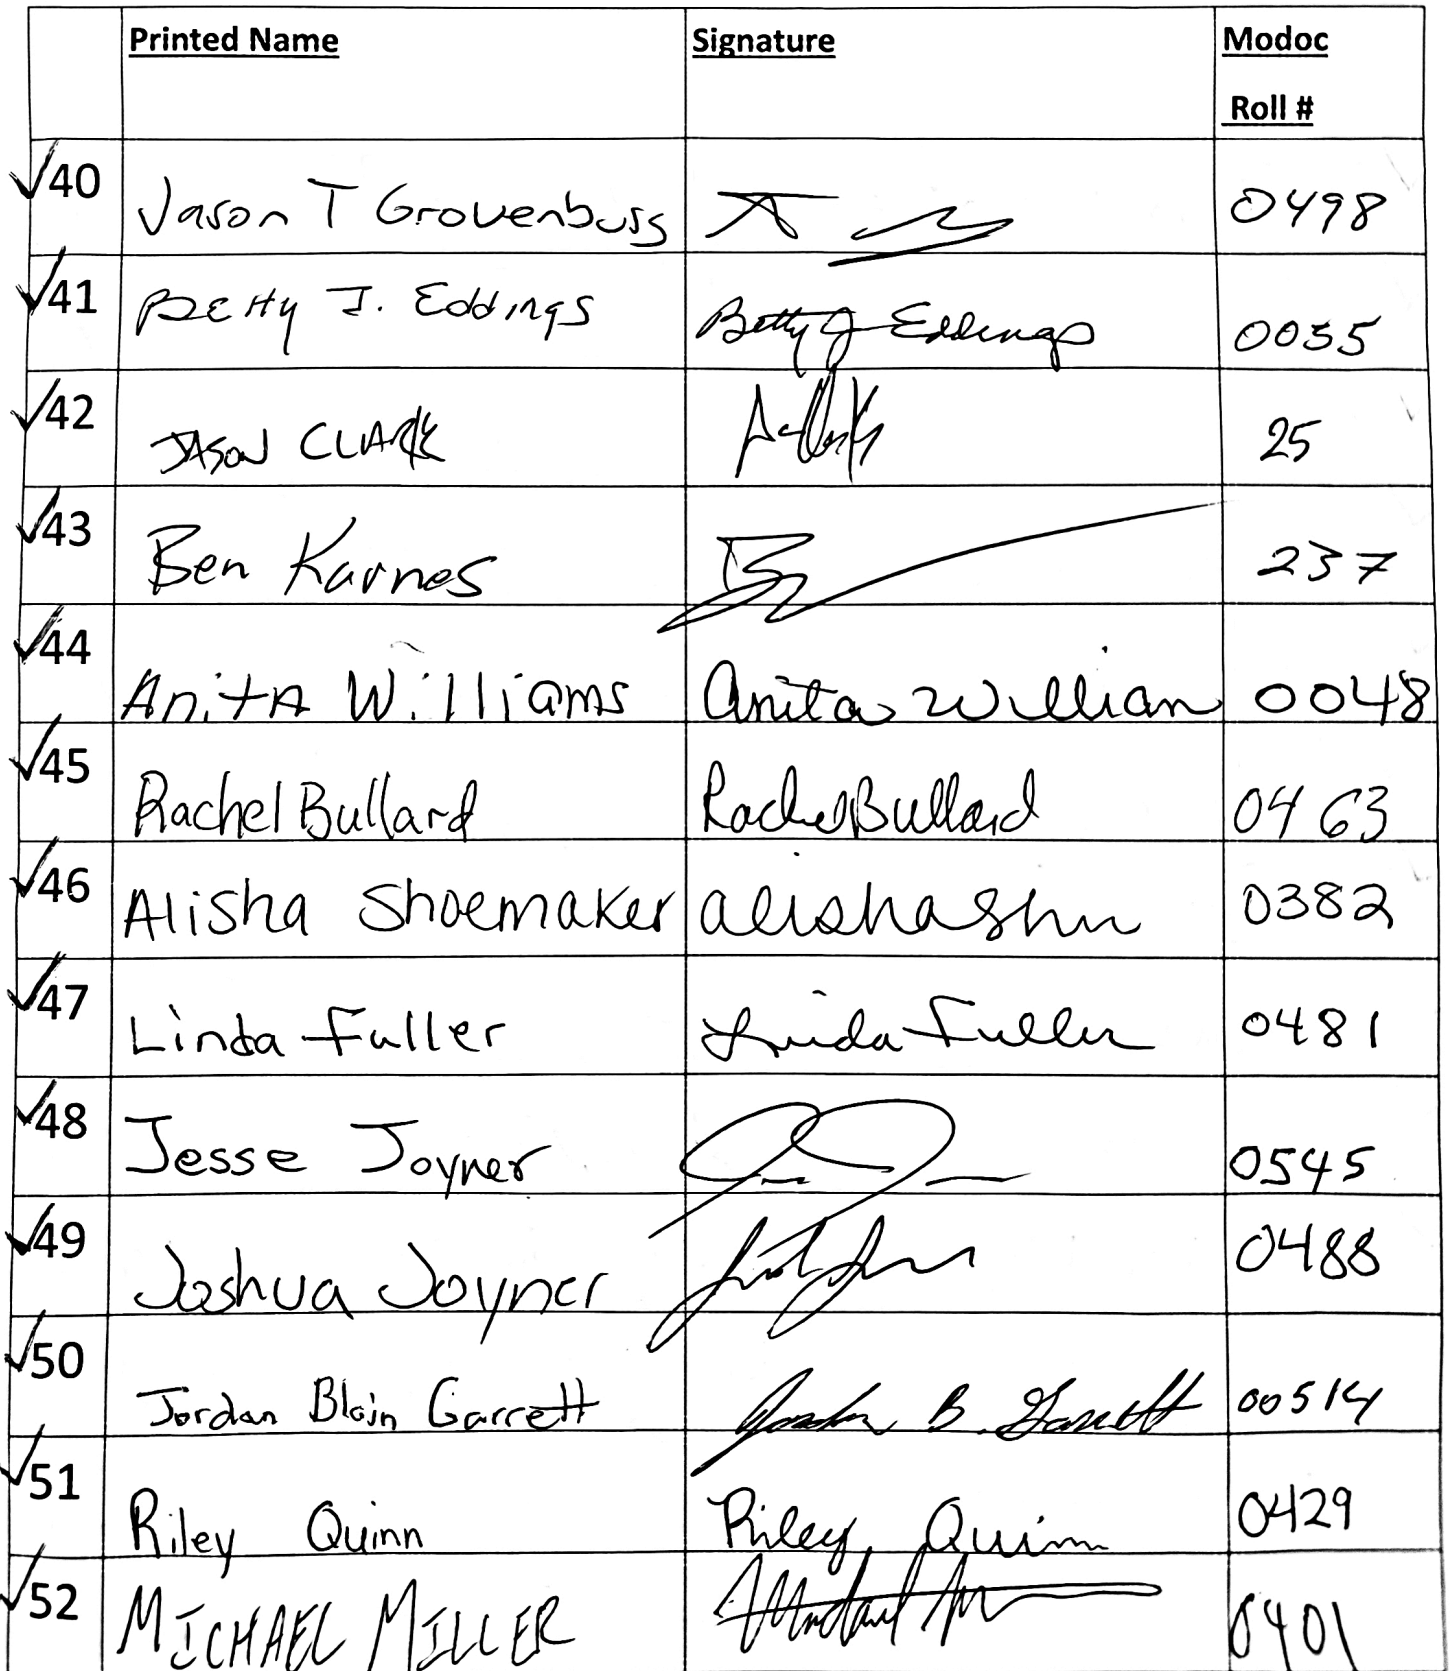 Printed Name Signature Modoc
Roll #
√40 Jason T Grovenburg 0498
√41 Betty J. Eddings Betty J Eddings 0035
√42 JASON CLARK 25
√43 Ben Karnes 237
√44 Anita Williams Anita William 0048
√45 Rachel Bullard Rachel Bullard 0463
√46 Alisha Shoemaker alisha Sh 0382
√47 Linda Fuller Linda Fuller 0481
√48 Jesse Joyner 0545
√49 Joshua Joyner 0488
√50 Jordan Blain Garrett Jordan B. Garrett 00514
√51 Riley Quinn Riley Quinn 0429
√52 MICHAEL MILLER Michael 0401